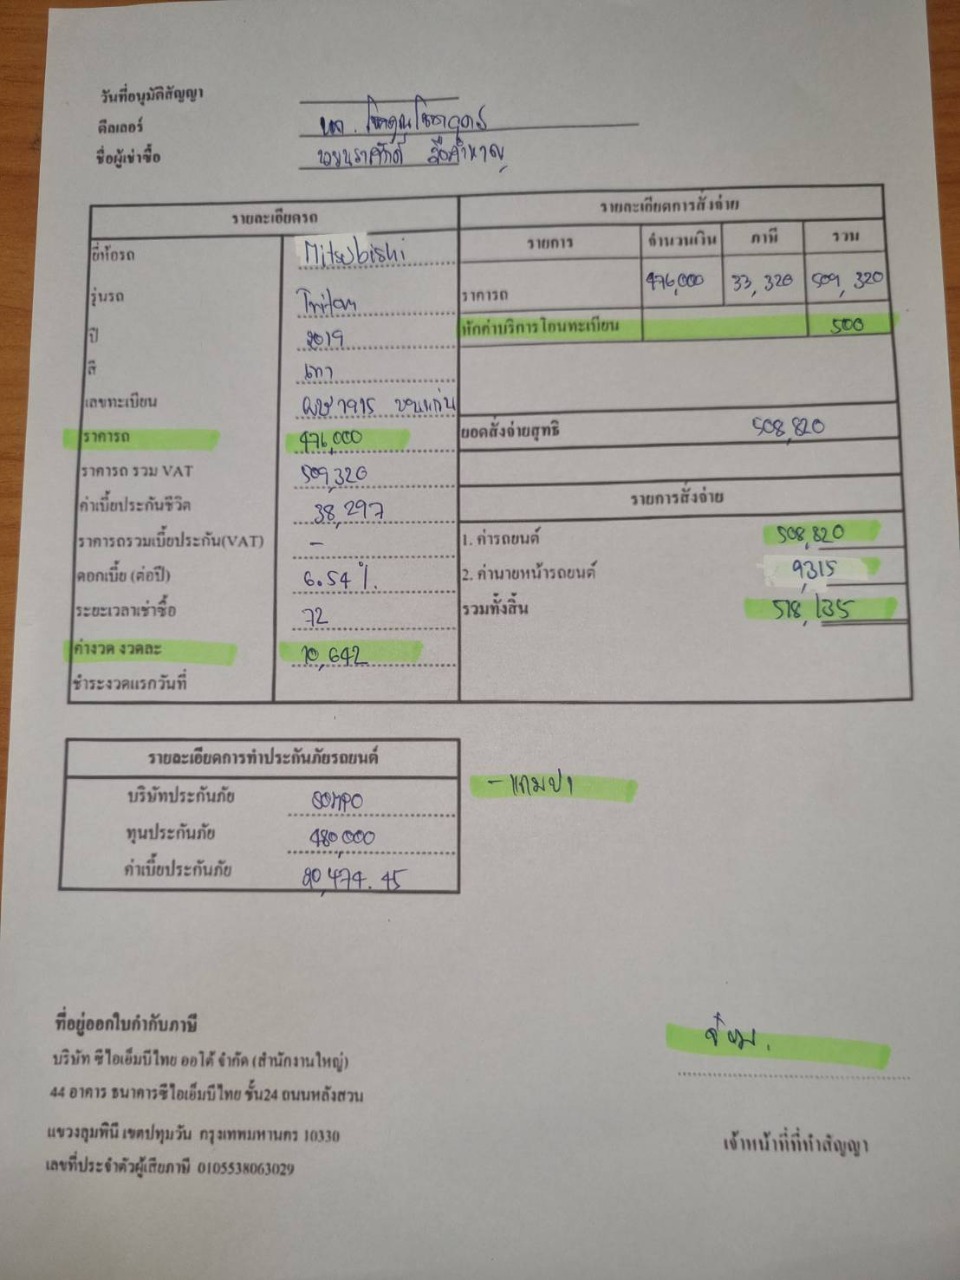 วันที่อนุมัติสัญญา
ดีลเลอร์ หจ. โชคคูณโชค
ชื่อผู้เช่าซื้อ
รายละเอียดรถ
ยี่ห้อรถ Mitsubishi
รุ่นรถ Triton
ปี 2019
สี เทา
เลขทะเบียน ขอนแก่น
ราคารถ 476,000
ราคารถ รวม VAT 509,320
ค่าเบี้ยประกันชีวิต 38,297
ราคารถรวมเบี้ยประกัน(VAT) -
ดอกเบี้ย (ต่อปี) 6.54 %
ระยะเวลาเช่าซื้อ 72
ค่างวด งวดละ 10,642
ชำระงวดแรกวันที่
รายละเอียดการสั่งจ่าย
รายการ จำนวนเงิน ภาษี รวม
ราคารถ 476,000 33,320 509,320
หักค่าบริการโอนทะเบียน 500
ยอดสั่งจ่ายสุทธิ 508,820
รายการสั่งจ่าย
1. ค่ารถยนต์ 508,820
2. ค่านายหน้ารถยนต์ 9,315
รวมทั้งสิ้น 518,135
รายละเอียดการทำประกันภัยรถยนต์
บริษัทประกันภัย SOMPO
ทุนประกันภัย 480,000
ค่าเบี้ยประกันภัย 20,474.45
- แถมป1
ที่อยู่ออกใบกำกับภาษี
บริษัท ซีไอเอ็มบีไทย ออโต้ จำกัด (สำนักงานใหญ่)
44 อาคาร ธนาคารซีไอเอ็มบีไทย ชั้น24 ถนนหลังสวน
แขวงลุมพินี เขตปทุมวัน กรุงเทพมหานคร 10330
เลขที่ประจำตัวผู้เสียภาษี 0105538063029
เจ้าหน้าที่ที่ทำสัญญา